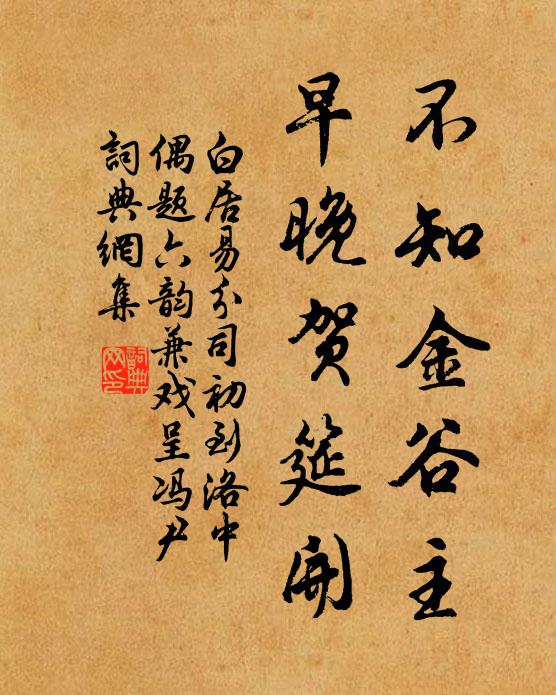 不知金谷主
早晚贺筵開
白居易分司初到洛中
偶题六韵兼戏呈冯尹
詞典網集
詞典网印